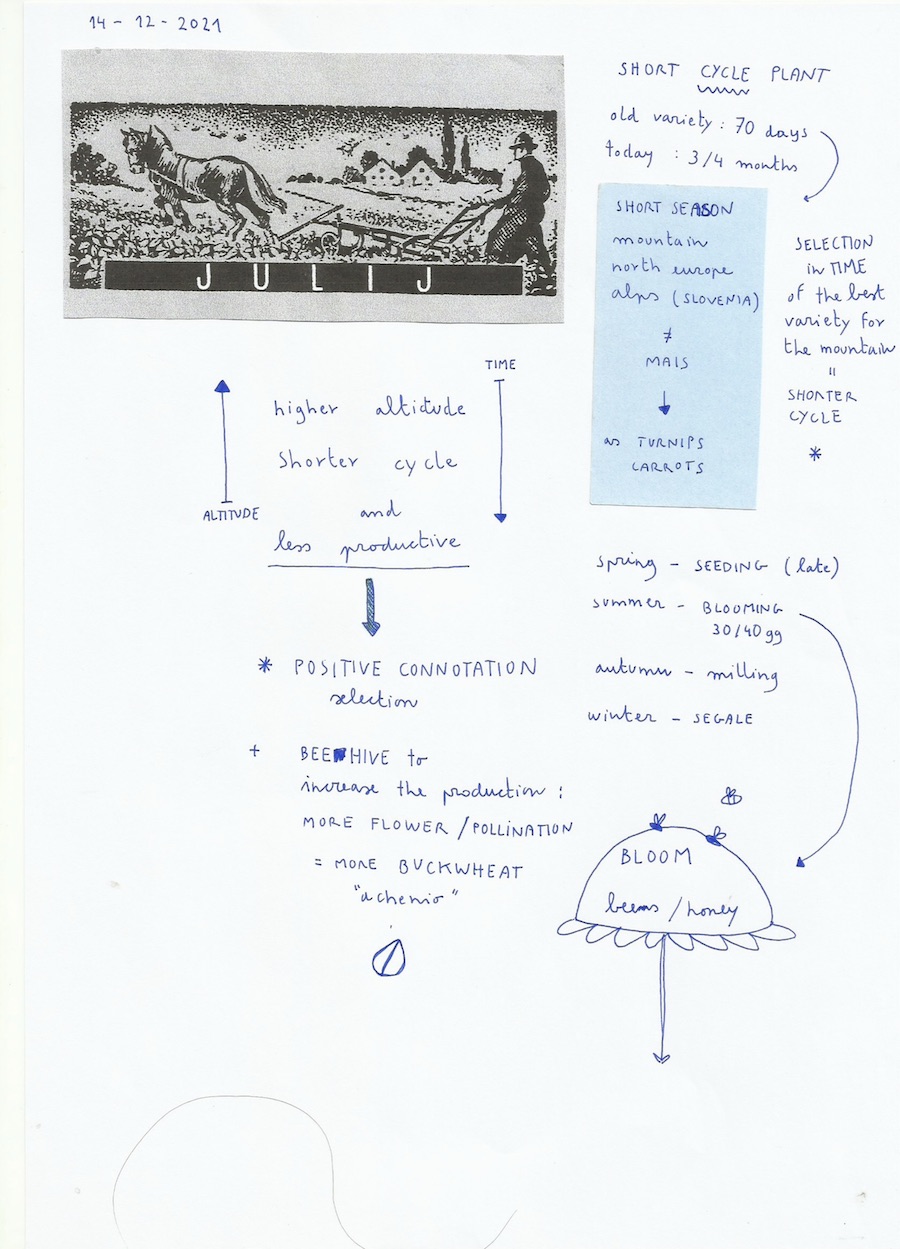 14 - 12 - 2021
JULIJ
SHORT CYCLE PLANT
old variety : 70 days
today : 3/4 months
SHORT SEASON
mountain
north europe
alps (SLOVENIA)
≠
MAIS
as TURNIPS
CARROTS
SELECTION
in TIME
of the best
variety for
the mountain
=
SHORTER
CYCLE
*
TIME
higher altitude
shorter cycle
and
less productive
ALTITUDE
* POSITIVE CONNOTATION
selection
+ BEEHIVE to
increase the production :
MORE FLOWER / POLLINATION
= MORE BUCKWHEAT
"achenio"
spring - SEEDING (late)
summer - BLOOMING
30/40 gg
autumn - milling
winter - SEGALE
BLOOM
beens / honey